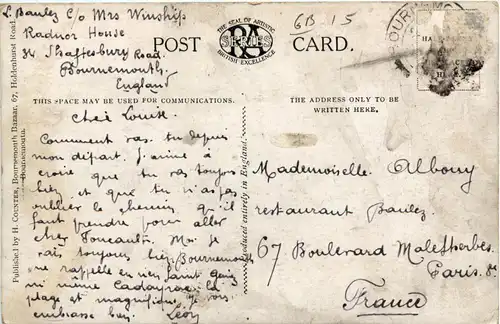 L. Baulez C/o Mrs Winship
Radnor House
34 Shaftesbury Road.
Bournemouth.
England
POST
THE SEAL OF ARTISTIC
RA
SERIES
BRITISH EXCELLENCE
CARD.
6B 15
THIS SPACE MAY BE USED FOR COMMUNICATIONS.
THE ADDRESS ONLY TO BE
WRITTEN HERE.
Chère Louise.
Comment vas-tu depuis
mon départ. J'aime à
croire que tu vas toujours
bien et que tu n'as pas
oublier le chemin qu'il
faut prendre pour aller
chez Foucault. Moi je
vais toujours bien Bournemouth
ne rappelle en rien Saint
ni même la
plage est magnifique je vous
embrasse bien. Léon
Mademoiselle Albouy
restaurant Baulez
67 Boulevard Malesherbes.
Paris. 8e
France
Published by H. COUNTER, Bournemouth Bazaar, 67, Holdenhurst Road,
Bournemouth.
Produced entirely in England.